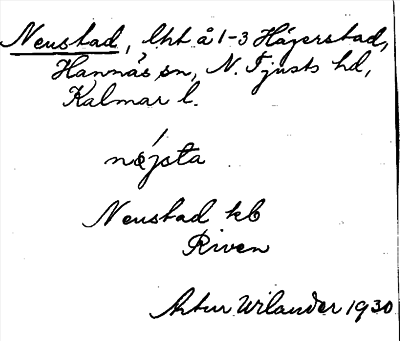 Neustad, lht å 1-3 Hägerstad,
Hannäs sn, N. Tjusts hd,
Kalmar l.
næjsta
Neustad kb
Riven
Artur Wilander 1930